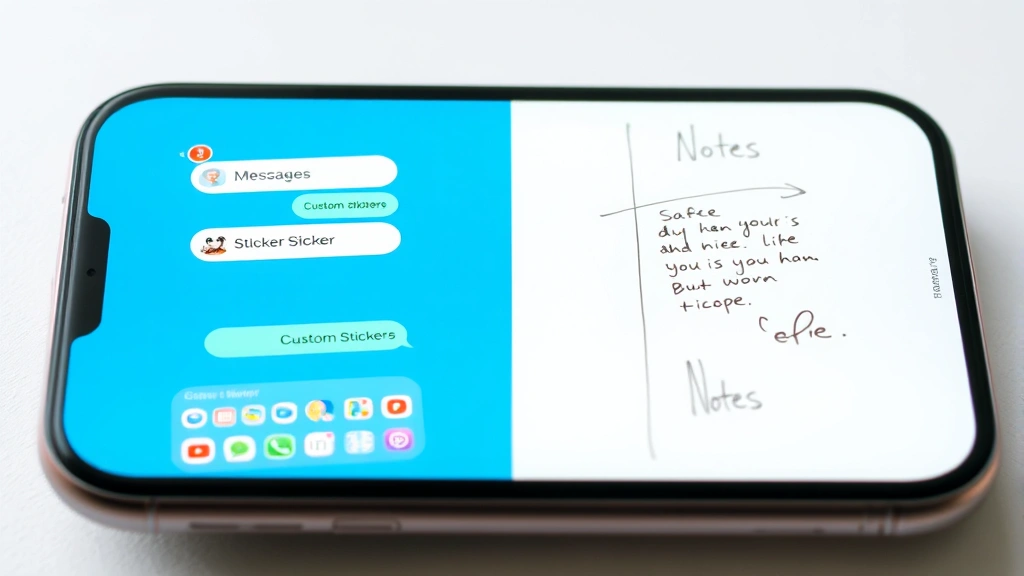 Messages
Custom stickers
Sticker Sicker
Custom Stickers
Notes
Safee
duy han your's
and niee. like
you is you han.
But worn
ticope.
Notes